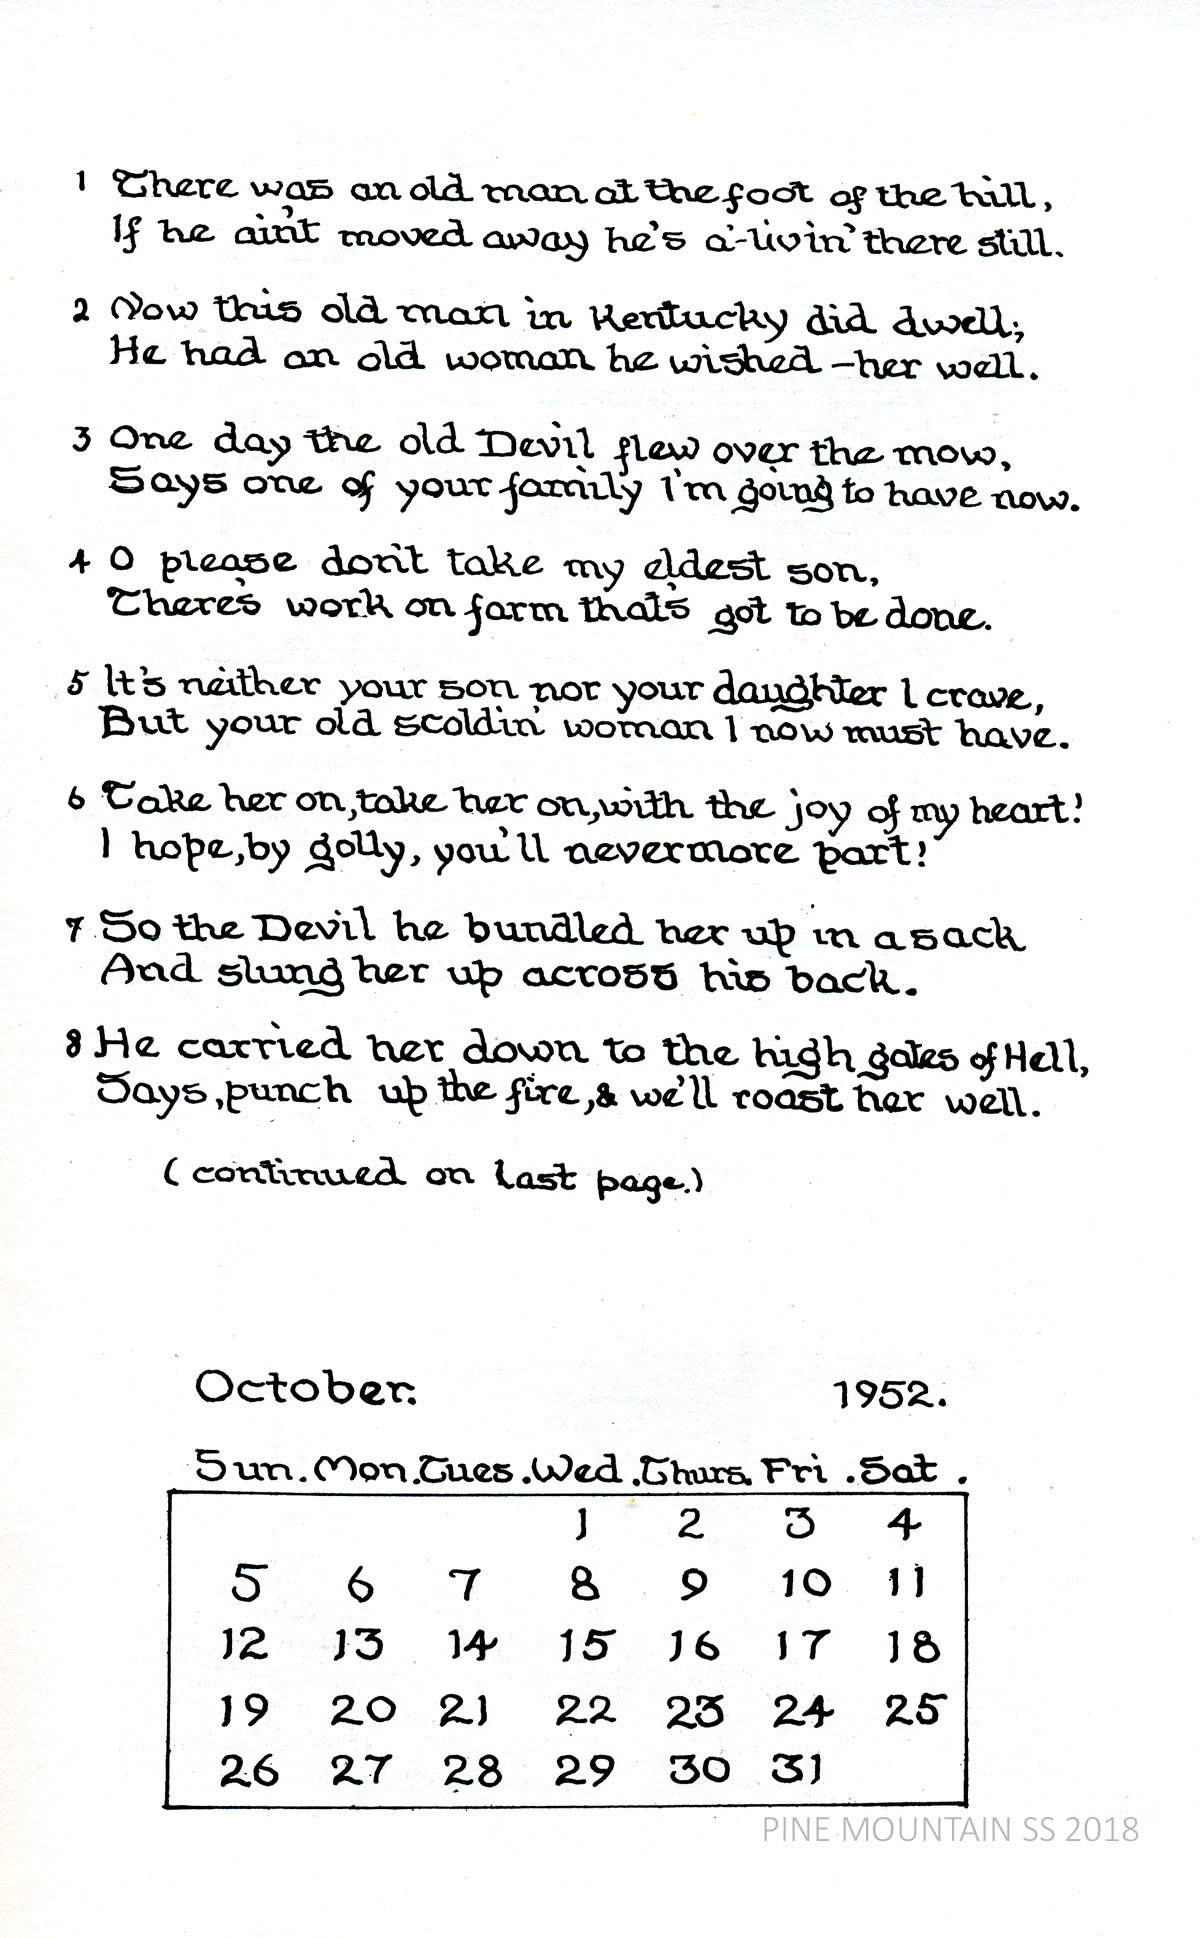 1 There was an old man at the foot of the hill,
If he ain't moved away he's a'-livin' there still.
2 Now this old man in Kentucky did dwell;
He had an old woman he wished -her well.
3 One day the old Devil flew over the mow,
Says one of your family I'm going to have now.
4 O please don't take my eldest son,
There's work on farm that's got to be done.
5 It's neither your son nor your daughter I crave,
But your old scoldin' woman I now must have.
6 Take her on, take her on, with the joy of my heart!
I hope, by golly, you'll nevermore part!
7 So the Devil he bundled her up in a sack
And slung her up across his back.
8 He carried her down to the high gates of Hell,
Says, punch up the fire, & we'll roast her well.
(continued on last page.)
October. 1952.
Sun. Mon. Tues. Wed. Thurs. Fri. Sat.
1 2 3 4
5 6 7 8 9 10 11
12 13 14 15 16 17 18
19 20 21 22 23 24 25
26 27 28 29 30 31
PINE MOUNTAIN SS 2018